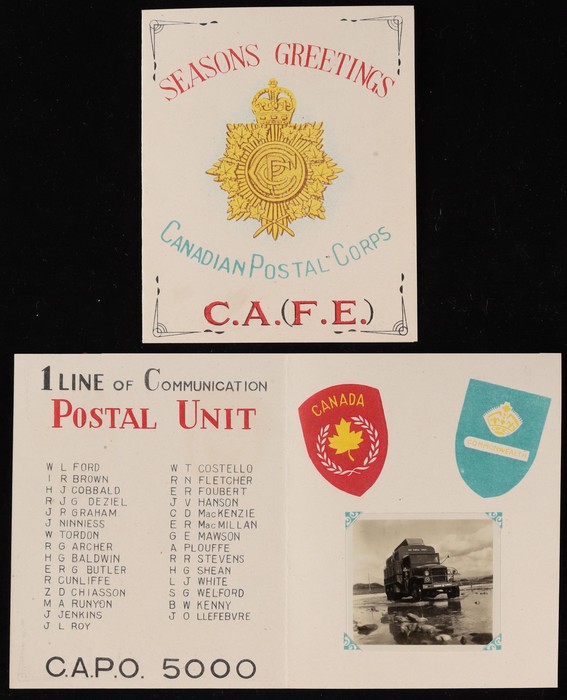 SEASONS GREETINGS
CANADIAN POSTAL CORPS
C.A.(F.E.)
1 LINE OF COMMUNICATION
POSTAL UNIT
W L FORD
I R BROWN
H J COBBALD
R J G DEZIEL
J R GRAHAM
J NINNIESS
W TORDON
R G ARCHER
H G BALDWIN
E R G BUTLER
R CUNLIFFE
Z D CHIASSON
M A RUNYON
J JENKINS
J L ROY
W T COSTELLO
R N FLETCHER
E R FOUBERT
J V HANSON
C D MacKENZIE
E R MacMILLAN
G E MAWSON
A PLOUFFE
R R STEVENS
H G SHEAN
L J WHITE
S G WELFORD
B W KENNY
J O LLEFEBVRE
C.A.P.O. 5000
CANADA
COMMONWEALTH